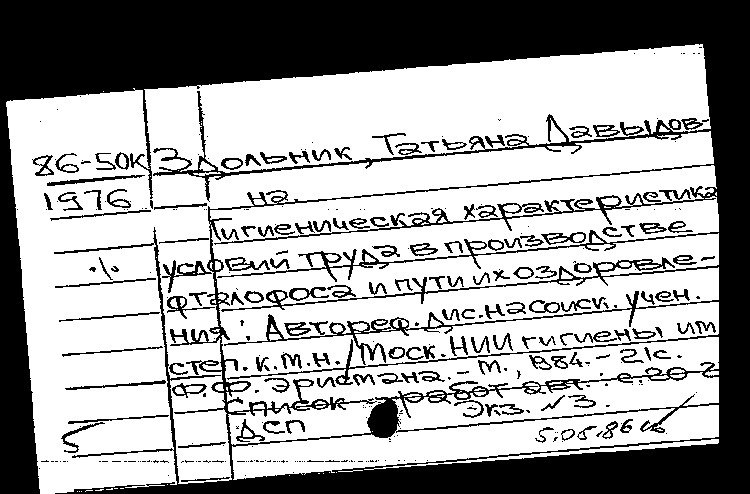 86-50к Здольник, Татьяна Давыдов-
1976 на.
Гигиеническая характеристика
·/· условий труда в производстве
фталофоса и пути их оздоровле-
ния: Автореф. дис. на соиск. учен.
степ. к.м.н. / Моск. НИИ гигиены им
Ф.Ф. Эрисмана. - М., 1984. - 21с.
Список работ авт.: с. 20
5 ДСП Экз. №3.
5.05.86